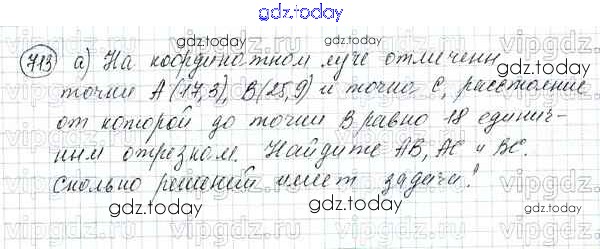 gdz.today
713 а) На координатном луче отмечены
точки А(17,3), В(25,9) и точка С, расстояние
от которой до точки В равно 18 единич-
ным отрезком. Найдите АВ, АС и ВС.
Сколько решений имеет задача?
gdz.today
gdz.today
gdz.today
gdz.today
gdz.today